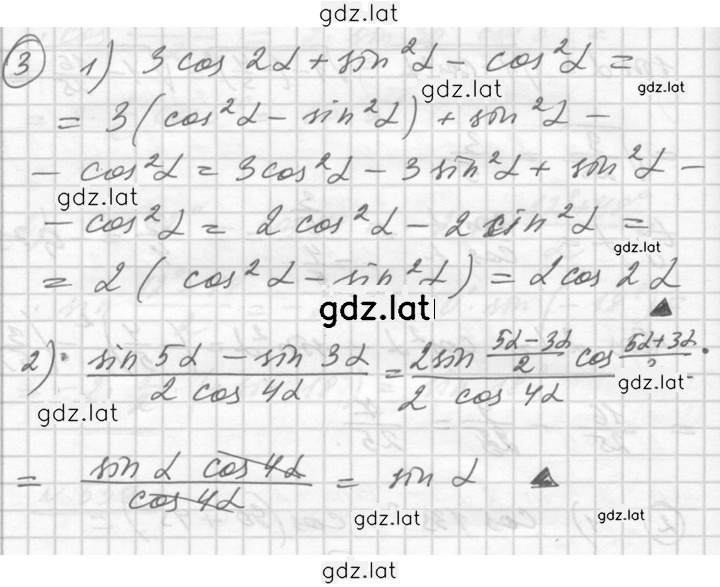 gdz.lat
③ 1) 3 cos 2α + sin²α − cos²α =
gdz.lat gdz.lat
= 3(cos²α − sin²α) + sin²α −
− cos²α = 3cos²α − 3sin²α + sin²α −
gdz.lat
− cos²α = 2 cos²α − 2 sin²α =
gdz.lat
= 2 ( cos²α − sin²α ) = 2cos 2α
gdz.lat
2) (sin 5α − sin 3α)/(2 cos 4α) = (2 sin (5α − 3α)/2 cos (5α + 3α)/2)/(2 cos 4α)
gdz.lat gdz.lat
= (sin α cos 4α)/(cos 4α) = sin α
gdz.lat gdz.lat
gdz.lat